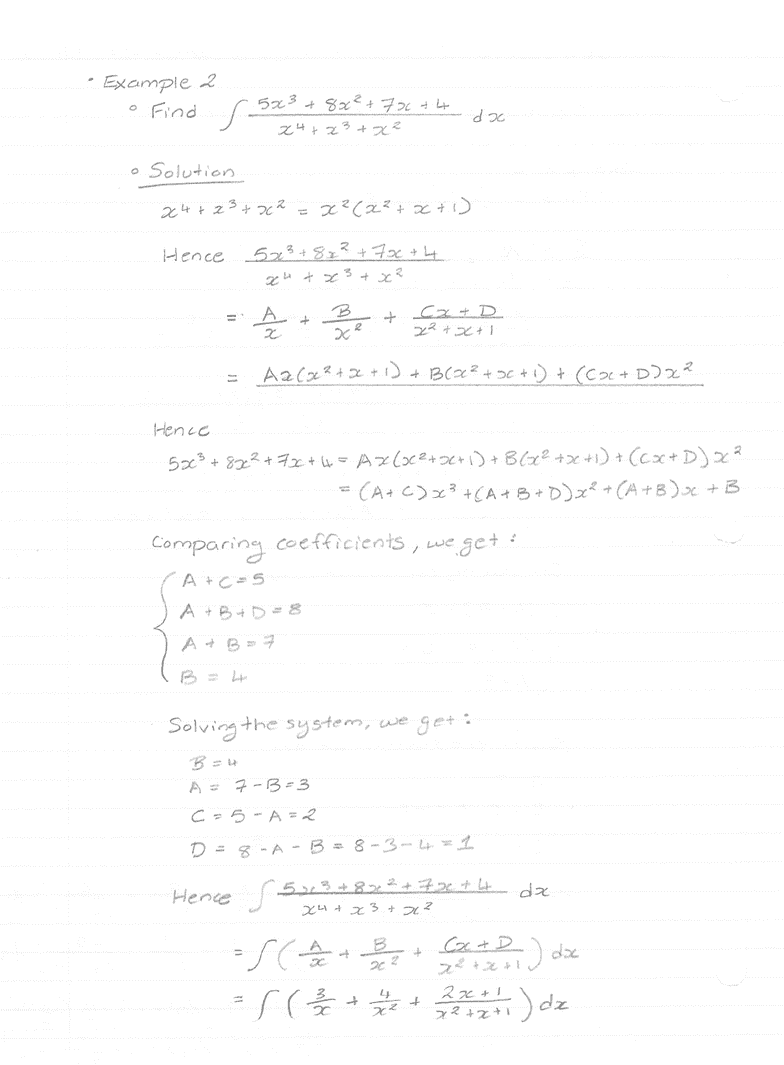 • Example 2
∘ Find ∫ (5x³ + 8x² + 7x + 4)/(x⁴ + x³ + x²) dx
∘ Solution
x⁴ + x³ + x² = x²(x² + x + 1)
Hence (5x³ + 8x² + 7x + 4)/(x⁴ + x³ + x²)
= A/x + B/x² + (Cx + D)/(x² + x + 1)
= Ax(x² + x + 1) + B(x² + x + 1) + (Cx + D)x²
Hence
5x³ + 8x² + 7x + 4 = Ax(x² + x + 1) + B(x² + x + 1) + (Cx + D)x²
= (A + C)x³ + (A + B + D)x² + (A + B)x + B
Comparing coefficients, we get :
{ A + C = 5
A + B + D = 8
A + B = 7
B = 4
Solving the system, we get :
B = 4
A = 7 - B = 3
C = 5 - A = 2
D = 8 - A - B = 8 - 3 - 4 = 1
Hence ∫ (5x³ + 8x² + 7x + 4)/(x⁴ + x³ + x²) dx
= ∫ (A/x + B/x² + (Cx + D)/(x² + x + 1)) dx
= ∫ (3/x + 4/x² + (2x + 1)/(x² + x + 1)) dx